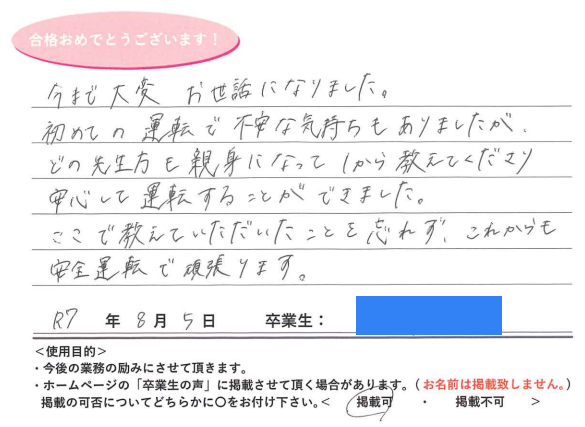 合格おめでとうございます！
今まで大変 お世話になりました。
初めての運転で不安な気持ちもありましたが、
どの先生方も親身になって1から教えてくださり
安心して運転することができました。
ここで教えていただいたことを忘れず、これからも
安全運転で頑張ります。
R7 年 8 月 5 日 卒業生：
＜使用目的＞
・今後の業務の励みにさせて頂きます。
・ホームページの「卒業生の声」に掲載させて頂く場合があります。（お名前は掲載致しません。）
掲載の可否についてどちらかに〇をお付け下さい。＜ 掲載可 ・ 掲載不可 ＞